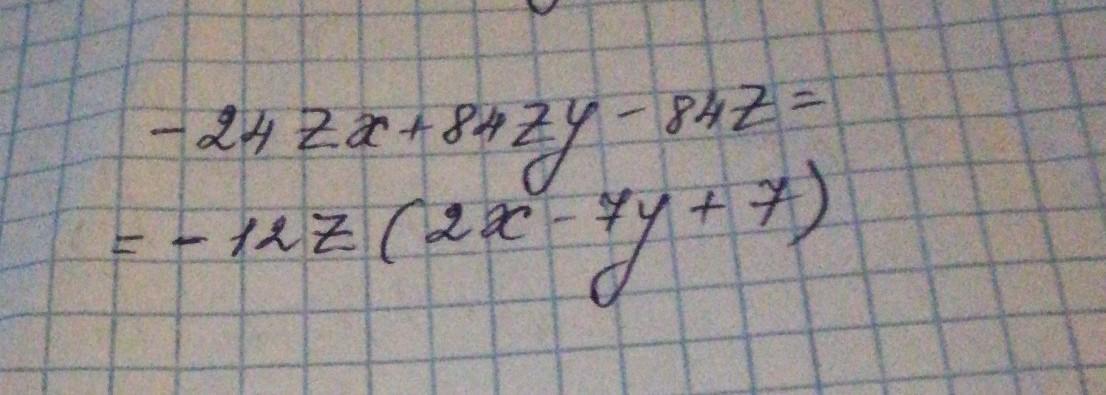 -24zx+84zy-84z=
=-12z(2x-7y+7)